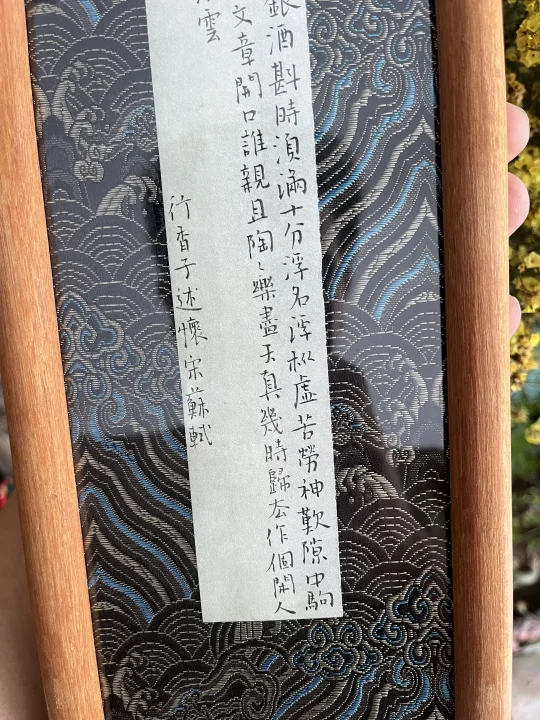 銀酒斟時湏滿十分浮名浮利虛苦勞神歎隙中駒
文章開口誰親且陶〻樂盡天真幾時歸去作個閑人
雲
行香子述懷宋蘇軾